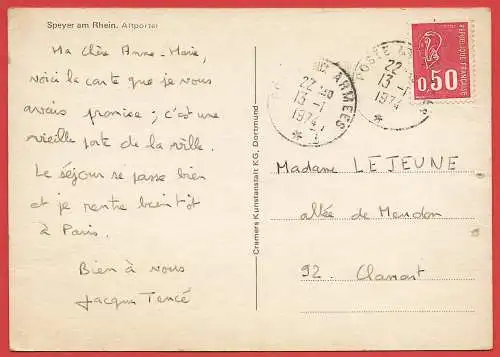 Speyer am Rhein. Altportel
Ma chère Anne-Marie,
voici la carte que je vous
avais promise ; c'est une
vieille porte de la ville.
Le séjour se passe bien
et je rentre bientôt
à Paris.
Bien à vous
Jacques Tencé
Cramers Kunstanstalt KG, Dortmund
POSTE AUX ARMEES
22 30
13-1
1974
*
POSTE AUX ARMEES
22
13-1
1974
*
REPUBLIQUE FRANÇAISE
0,50
Madame LEJEUNE
allée de Meudon
92. Clamart